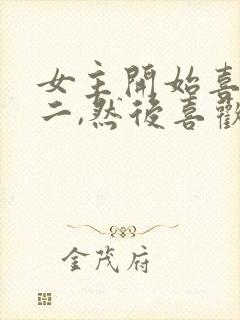 女主開始喜
二,然後喜歡
金茂府